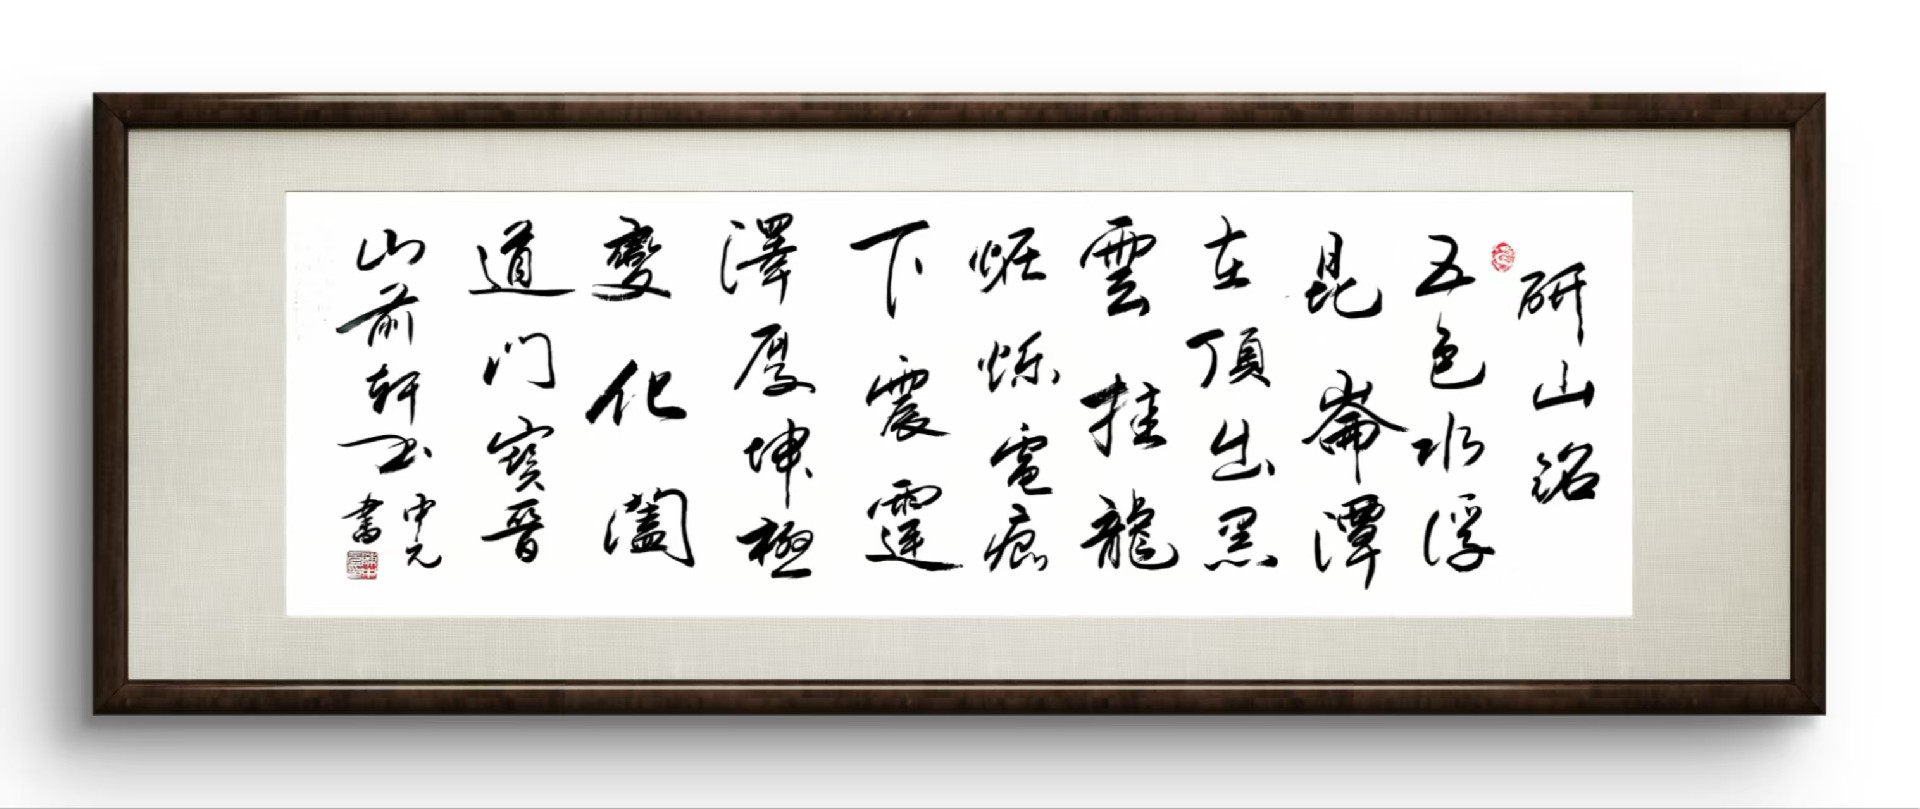 研山銘
五色水浮
昆崙潭
在頂出黑
雲挂龍
怪爍電痕
下震霆
澤厚坤極
變化闔
道門寶晉
山前軒書
中元
書